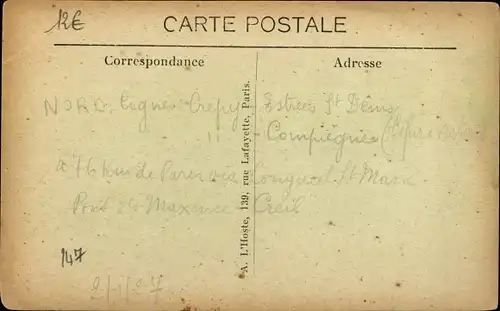 12€
CARTE POSTALE
Correspondance
Adresse
A. L'Hoste, 139, rue Lafayette, Paris.
NORD. Lignes Crépy - Estrees St Denis
" - Compiegne
à 76 Km de Paris via Longueil St Marie
Pont Ste Maxence - Creil
147